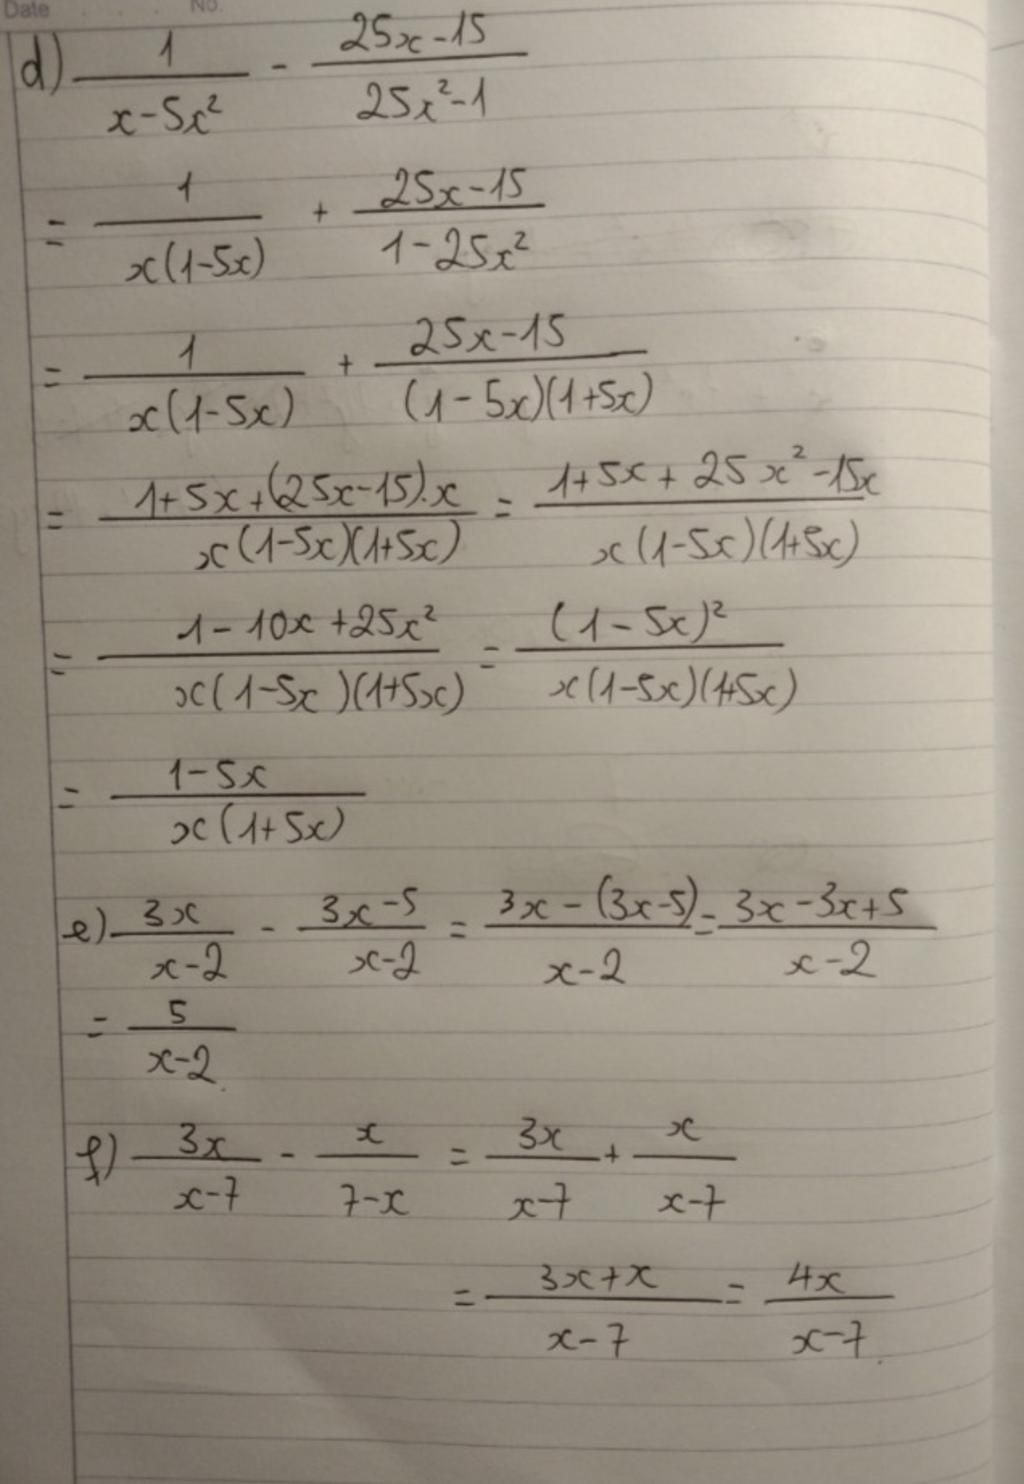 Date No.
d) 1/(x-5x²) - (25x-15)/(25x²-1)
= 1/(x(1-5x)) + (25x-15)/(1-25x²)
= 1/(x(1-5x)) + (25x-15)/((1-5x)(1+5x))
= (1+5x+(25x-15).x)/(x(1-5x)(1+5x)) = (1+5x+25x²-15x)/(x(1-5x)(1+5x))
= (1-10x+25x²)/(x(1-5x)(1+5x)) = (1-5x)²/(x(1-5x)(1+5x))
= (1-5x)/(x(1+5x))
e) 3x/(x-2) - (3x-5)/(x-2) = (3x-(3x-5))/(x-2) = (3x-3x+5)/(x-2)
= 5/(x-2).
f) 3x/(x-7) - x/(7-x) = 3x/(x-7) + x/(x-7)
= (3x+x)/(x-7) = 4x/(x-7).